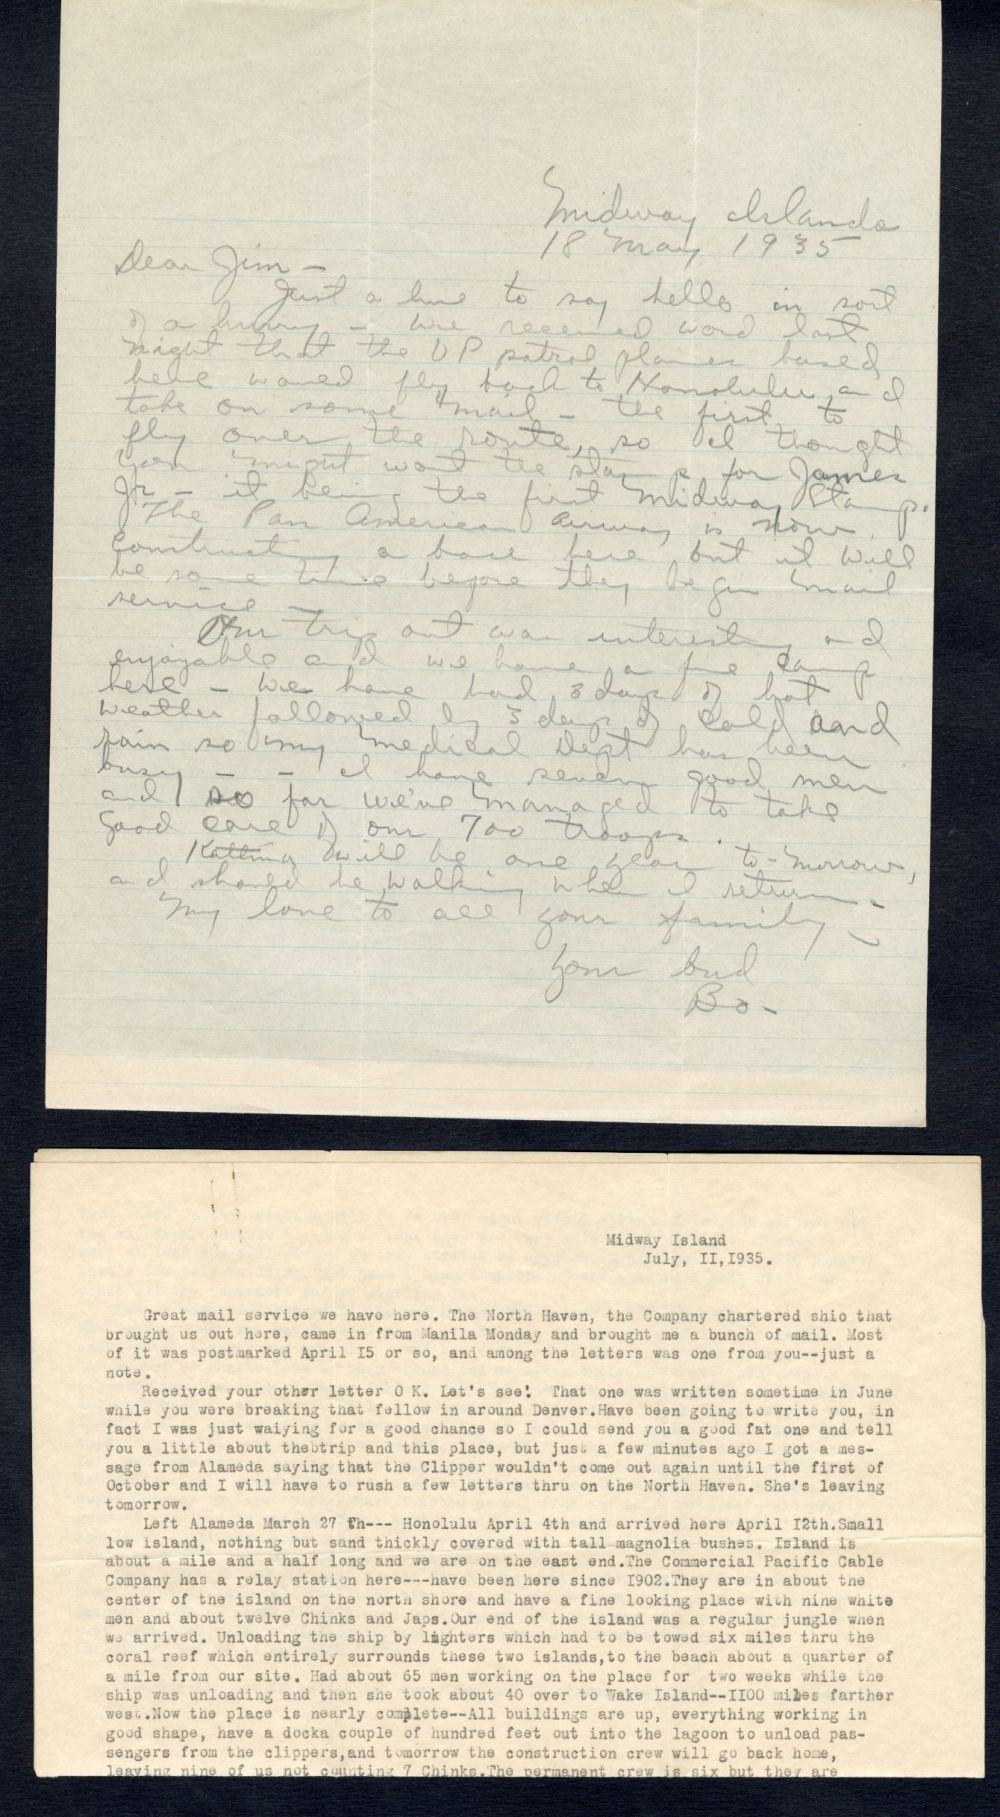 Midway Islands
18 May 1935
Dear Jim -
Just a line to say hello in sort
of a hurry - We received word last
night that the VP patrol planes based
here would fly back to Honolulu and
take on some mail - the first to
fly over the route, so I thought
you might want the stamp for James
Jr - it being the first Midway Stamp.
The Pan American Airway is now
constructing a base here but it will
be some time before they begin mail
service
Our trip out was interesting and
enjoyable and we have a fine camp
here - We have had 3 days of hot
weather followed by 3 days of cold and
rain so my medical Dept has been
busy - - I have seven good men
and so far we've managed to take
good care of our 700 troops.
will be one year to-morrow,
and should be walking when I return -
My love to all your family
Your bud
Bo -
Midway Island
July, II,I935.
Great mail service we have here. The North Haven, the Company chartered shio that
brought us out here, came in from Manila Monday and brought me a bunch of mail. Most
of it was postmarked April I5 or so, and among the letters was one from you--just a
note.
Received your other letter O K. Let's see! That one was written sometime in June
while you were breaking that fellow in around Denver.Have been going to write you, in
fact I was just waiying for a good chance so I could send you a good fat one and tell
you a little about thebtrip and this place, but just a few minutes ago I got a mes-
sage from Alameda saying that the Clipper wouldn't come out again until the first of
October and I will have to rush a few letters thru on the North Haven. She's leaving
tomorrow.
Left Alameda March 27 th--- Honolulu April 4th and arrived here April I2th.Small
low island, nothing but sand thickly covered with tall magnolia bushes. Island is
about a mile and a half long and we are on the east end.The Commercial Pacific Cable
Company has a relay station here---have been here since I902.They are in about the
center of the island on the north shore and have a fine looking place with nine white
men and about twelve Chinks and Japs.Our end of the island was a regular jungle when
we arrived. Unloading the ship by lighters which had to be towed six miles thru the
coral reef which entirely surrounds these two islands,to the beach about a quarter of
a mile from our site. Had about 65 men working on the place for two weeks while the
ship was unloading and then she took about 40 over to Wake Island--II00 miles farther
west.Now the place is nearly complete--All buildings are up, everything working in
good shape, have a docka couple of hundred feet out into the lagoon to unload pas-
sengers from the clippers,and tomorrow the construction crew will go back home,
leaving nine of us not counting 7 Chinks.The permanent crew is six but they are